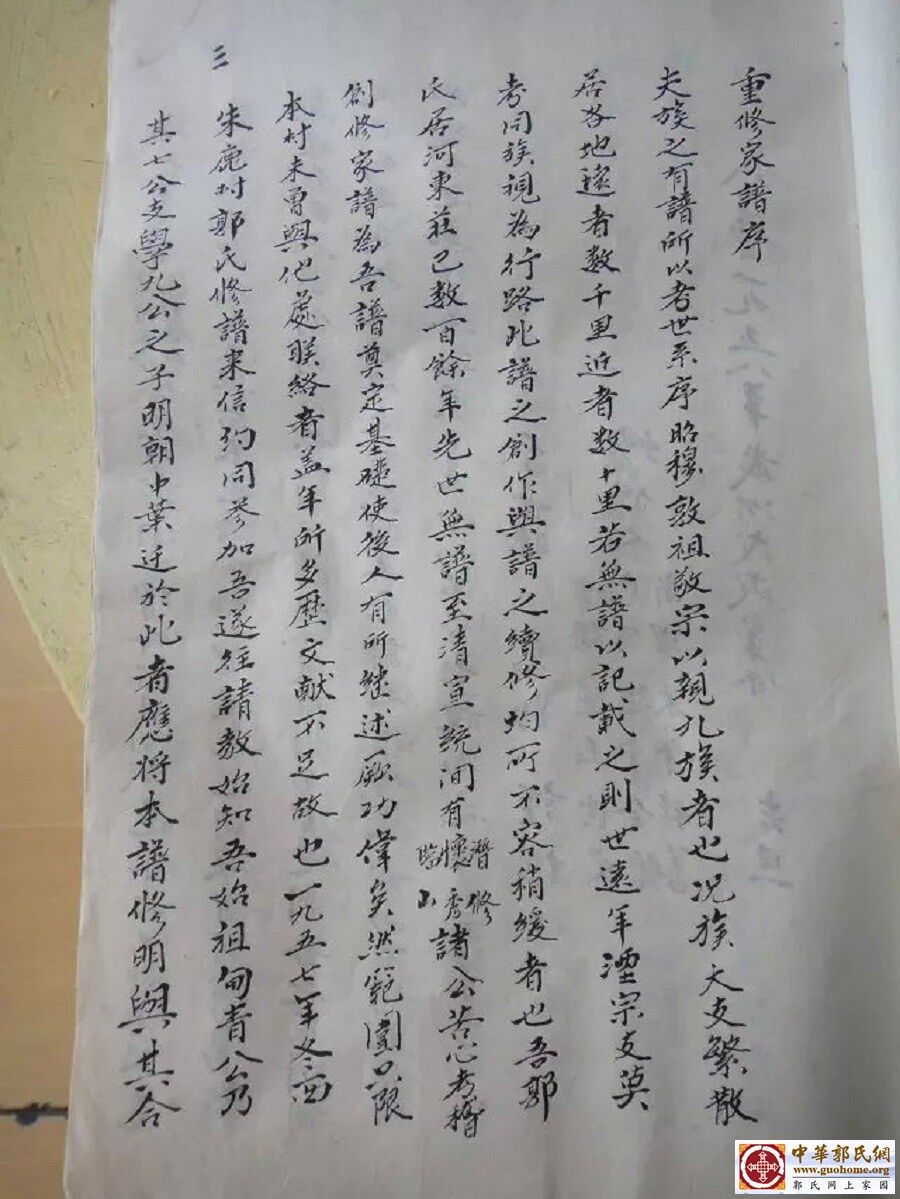 重修家譜序
夫族之有譜所以考世系序昭穆敦祖敬宗以親九族者也况族大支繁散
居各地遠者数千里近者数十里若無譜以記載之則世遠年湮宗支莫
考同族視為行路此譜之創作與譜之續修均所不容稍緩者也吾郭
氏居河東莊已数百餘年先世無譜至清宣統间有潛修懷秀山諸公苦心考稽
創修家譜為吾譜奠定基礎使後人有所继述厥功偉矣然範圍只限
本村未曾與他處联絡者盖年所多歷文献不足故也一九五七年冬西
朱鹿村郭氏修譜来信約同参加吾遂往請教始知吾始祖甸青公乃
其七公支學九公之子明朝中葉迁於此者應将本譜修明與其合
三
中華郭氏網
www.guohome.org
郭氏网上家园